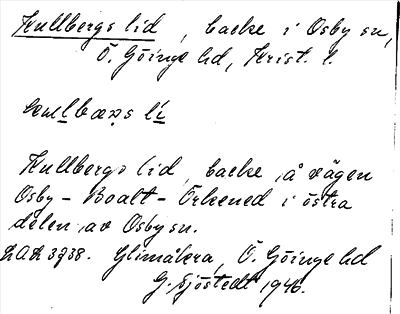 Kullbergs lid, backe i Osby sn,
Ö. Göinge hd, Krist. l.
Kullbergs lid, backe, å vägen
Osby - Boalt - Örkened i östra
delen av Osby sn.
Glimåkra, Ö. Göinge hd
G. Sjöstedt 1946.